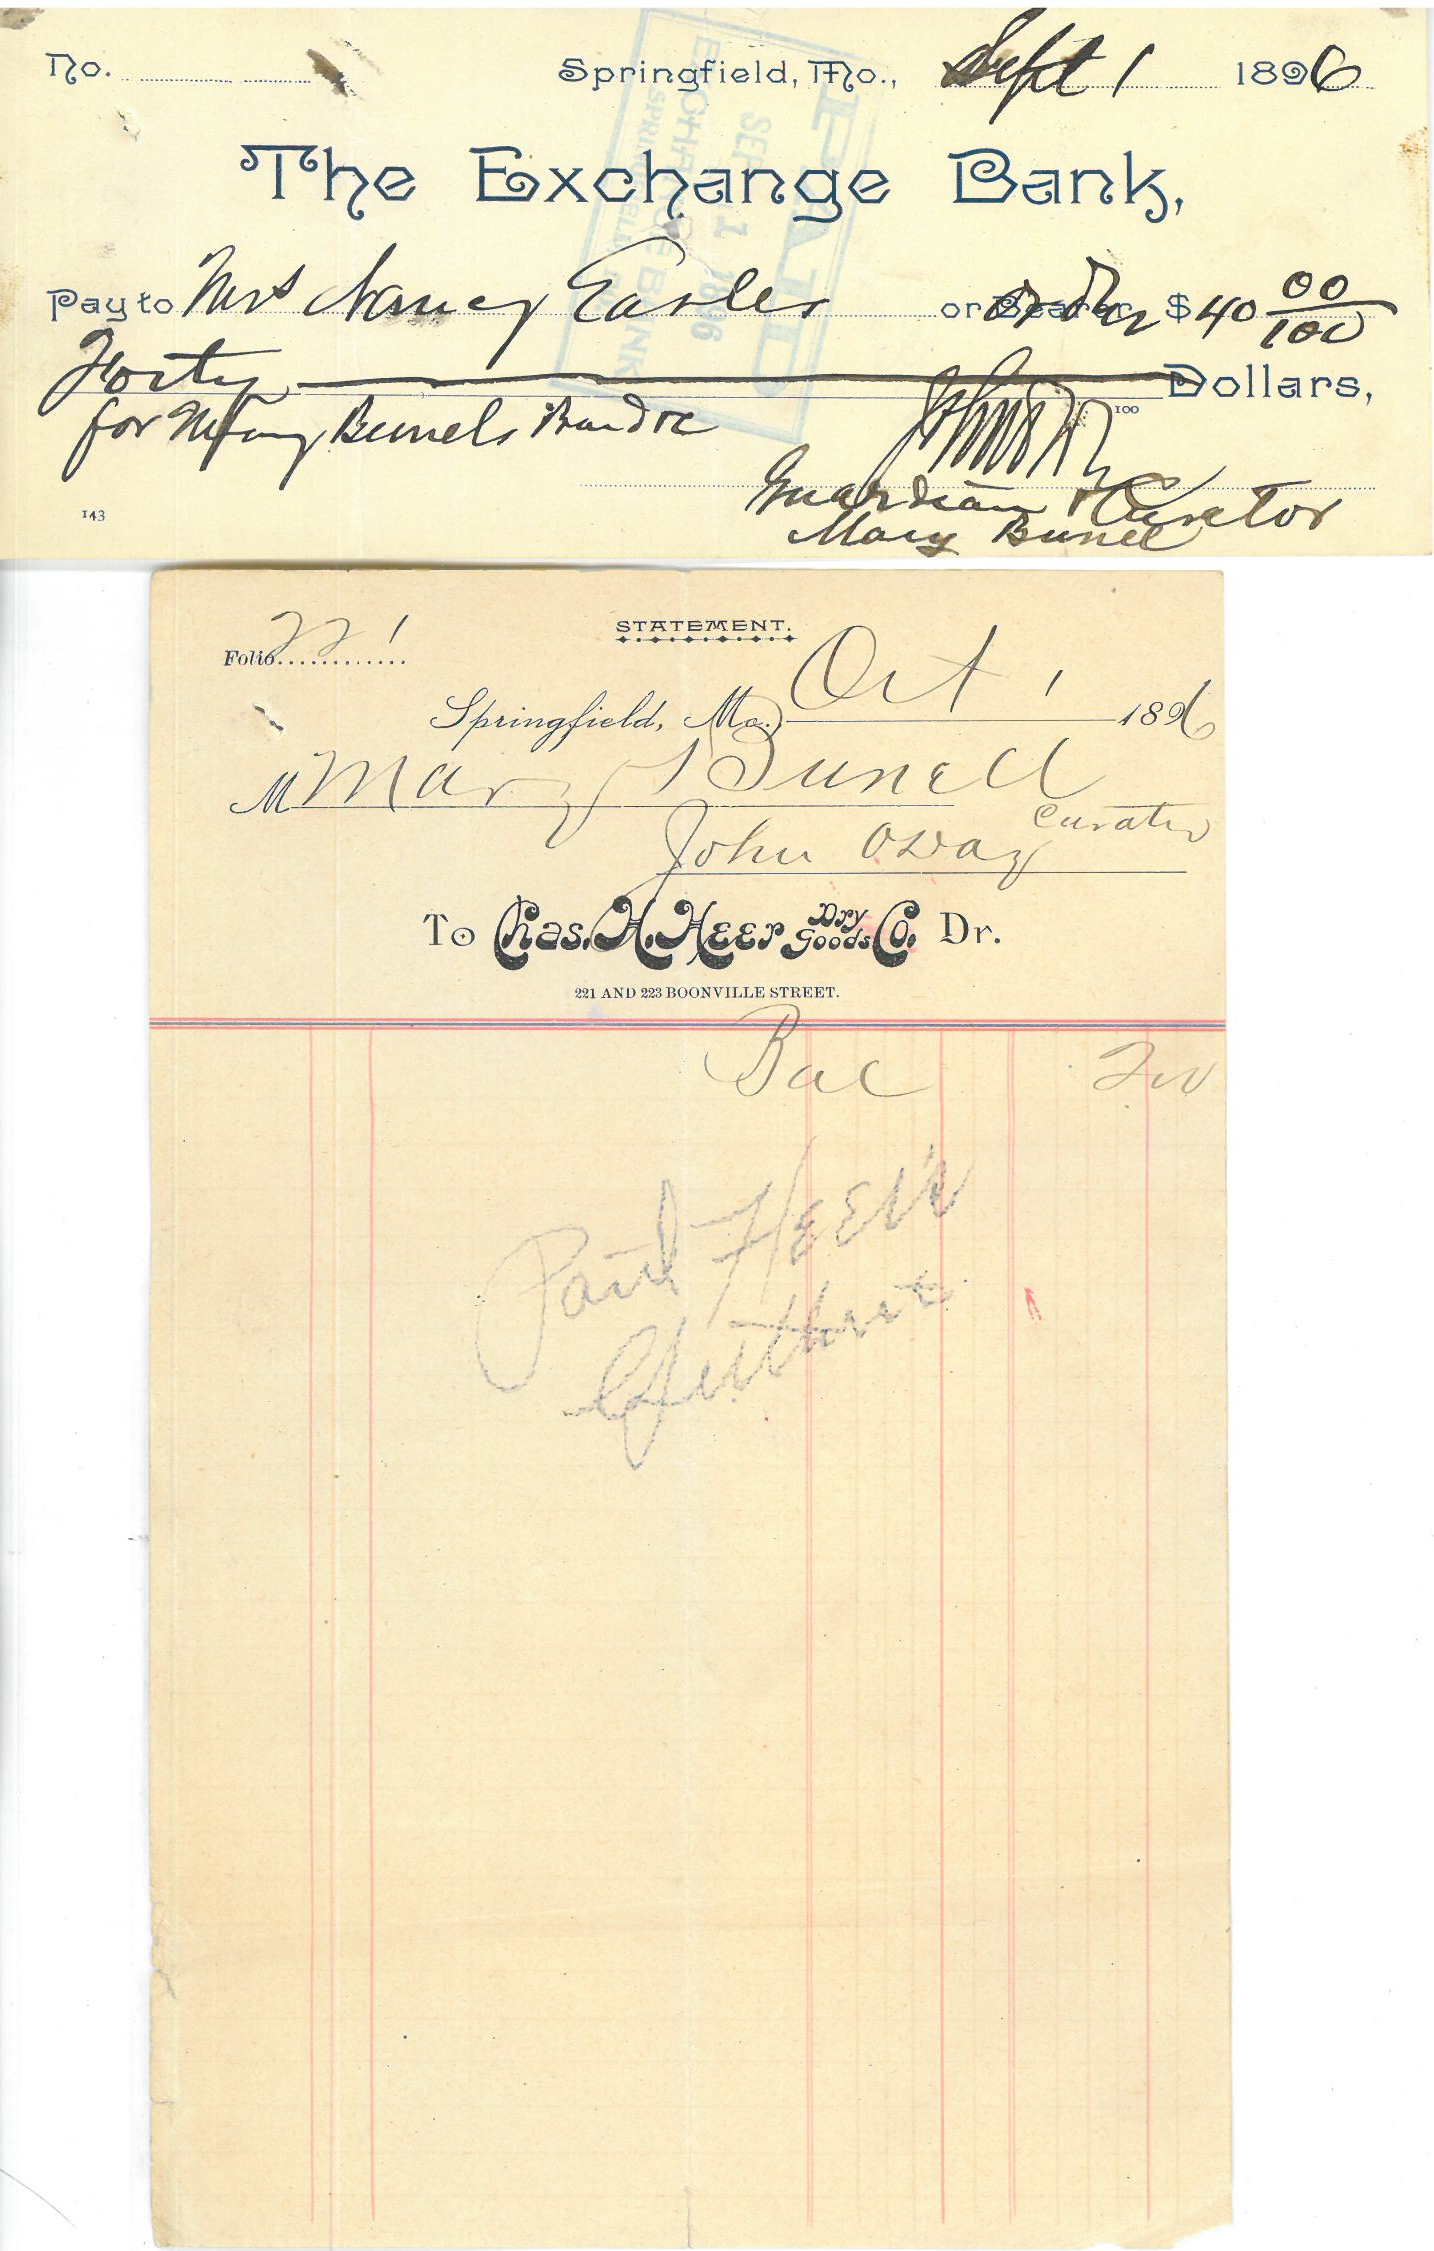 No. Springfield, Mo., Sept 1 1896
The Exchange Bank,
Pay to Mrs Nancy Easley or Bearer order $ 40 00/100
Forty Dollars,
100
for Mary Bunels Board
Guardian & Curator
Mary Bunell
143
PAID
SEP 1 1896
EXCHANGE BANK
Folio 221
STATEMENT.
Springfield, Mo., Oct 1 1896
M Mary Bunell
John Oday Curator
To Chas. H. Heer Dry Goods Co. Dr.
221 AND 223 BOONVILLE STREET.
Bal
Paid